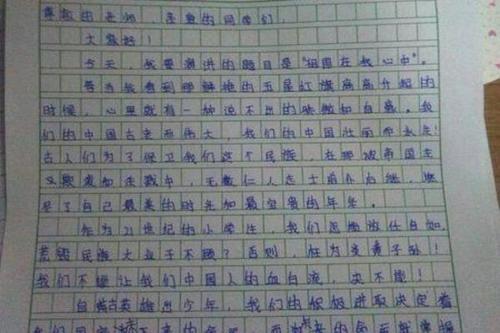 尊敬的老师，亲爱的同学们，
大家好！
今天，我要演讲的题目是“祖国在我心中”。
每当我看到那鲜艳的五星红旗高高升起的
时候，心里就有一种说不出的骄傲和自豪。我
们的中国古老而伟大，我们的中国壮丽而永生！
古人们为了保卫我们这个民族，在那被帝国主
义欺凌和 战中，无数仁人志士前仆后继，燃
尽了自己最美的时光和最宝贵的年华。
作为21世纪的小学生，我们怎能游任自如，
置 民族大业于不顾？否则，枉为炎黄子孙！
我们不能让我们中国人的血白流，决不能！
自古英雄出少年，我们的积极进取决定着
我们 的 ，而 来的